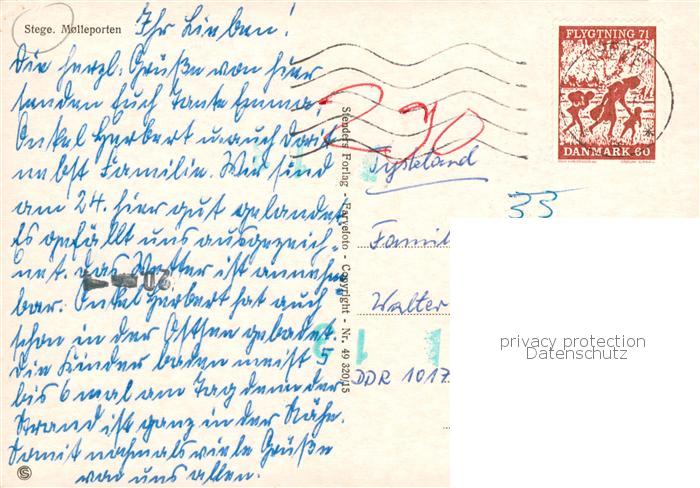 Stege. Mølleporten
Ihr Lieben!
Die herzl. Grüße von hier
senden Euch Tante Emma,
Onkel Herbert u. auch Dorit
nebst Familie. Wir sind
am 24. hier gut gelandet.
Es gefällt uns ausgezeich-
net. Das Wetter ist annehm
bar. Onkel Herbert hat auch
schon in der Ostsee gebadet.
Die Kinder baden meist 5
bis 6 mal am Tag denn der
Strand ist ganz in der Nähe.
Somit nochmals viele Grüße
von uns allen.
Stenders Forlag - Farvefoto - Copyright - Nr. 49 320/15
FLYGTNING 71
DANMARK 60
230
Tyskland
33
Famil
Walter
DDR 1017
privacy protection
Datenschutz